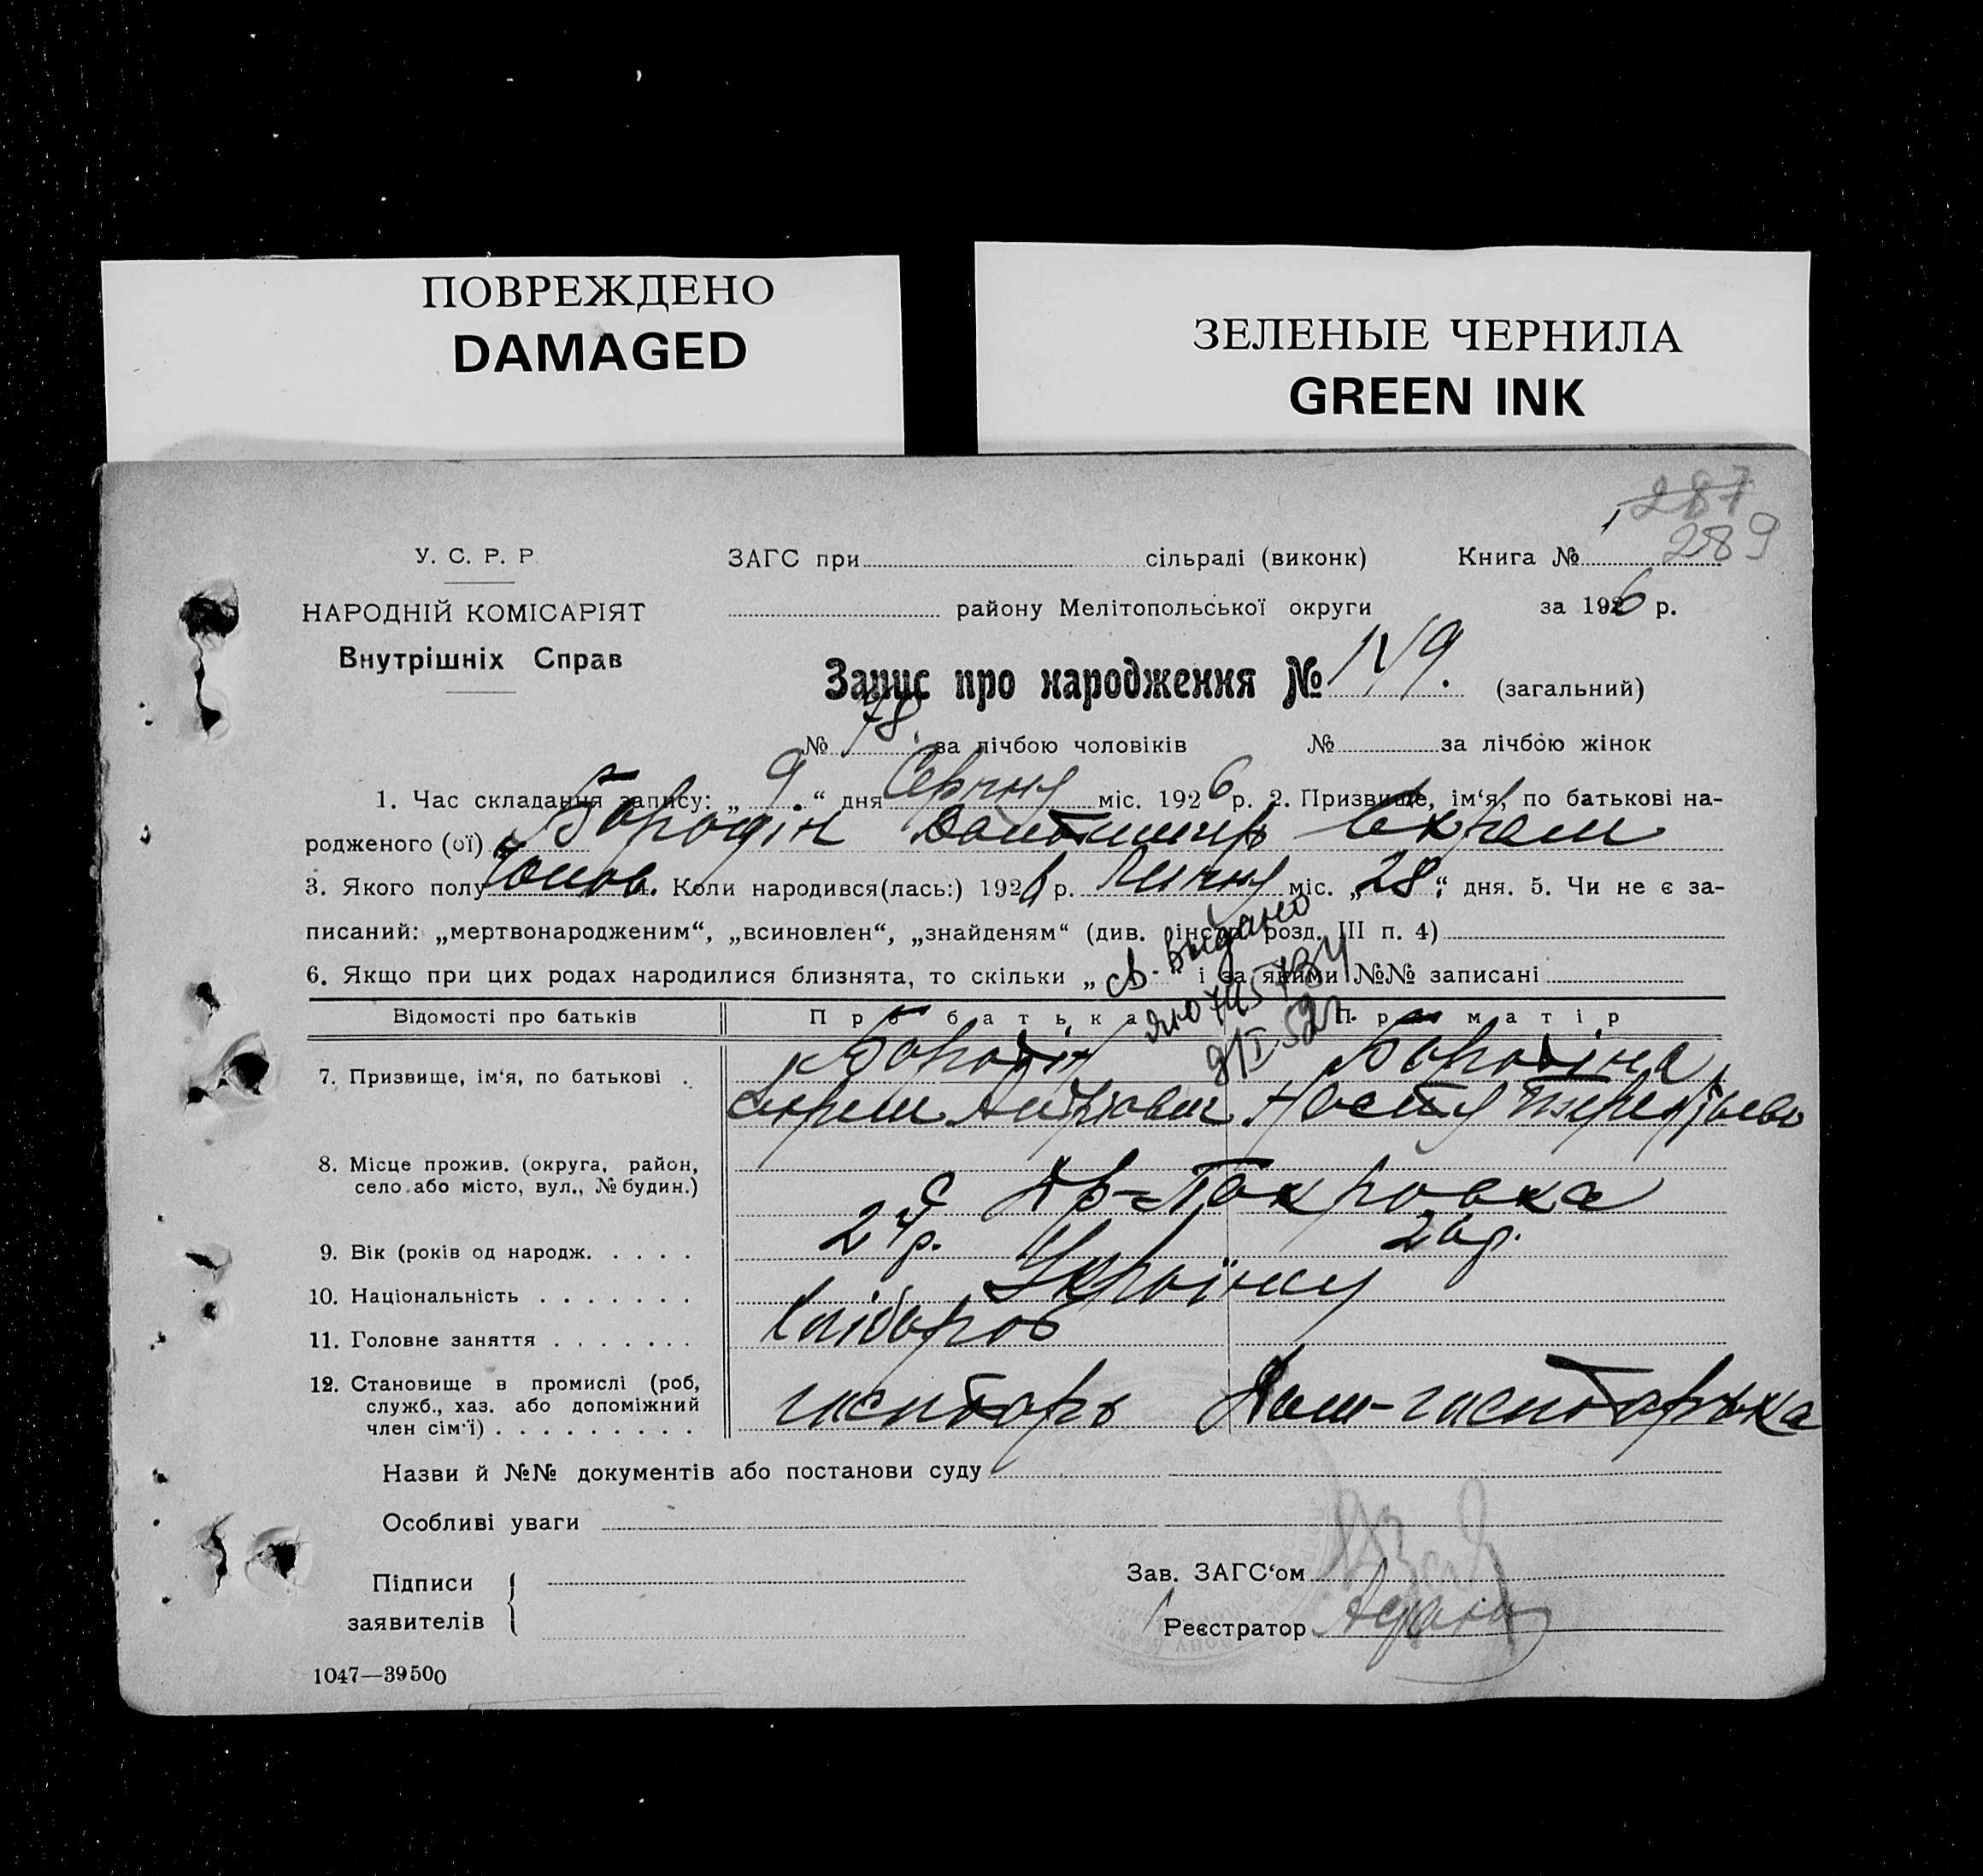 ПОВРЕЖДЕНО
DAMAGED
ЗЕЛЕНЫЕ ЧЕРНИЛА
GREEN INK
287
289
У. С. Р. Р.
НАРОДНІЙ КОМІСАРІЯТ
Внутрішніх Справ
ЗАГС при сільраді (виконк) Книга №
району Мелітопольської округи за 1926 р.
Запис про народження № (загальний)
№ 78. за лічбою чоловіків № за лічбою жінок
1. Час складання запису: „ 9 “ дня Серпня міс. 1926 р. 2. Призвище, ім‘я, по батькові на-
родженого (ої) Бородін
3. Якого полу 4. Коли народився(лась:) 1926 р. Липня міс. „ 28 “ дня. 5. Чи не є за-
писаний: „мертвонародженим“, „всиновлен“, „знайденям“ (див. інстр. розд. III п. 4)
6. Якщо при цих родах народилися близнята, то скільки „ “ і за якими №№ записані
св. выдано
9/I 52г.
Відомості про батьків Про батька Про матір
7. Призвище, ім‘я, по батькові . Бородін Бородіна
Настя
8. Місце прожив. (округа, район,
село або місто, вул., № будин.)
с. Покровка
9. Вік (років од народж. . . . . 26р.
10. Національність . . . . . . .
11. Головне заняття . . . . . . . Хлібороб
12. Становище в промислі (роб,
служб., хаз. або допоміжний
член сім‘ї) . . . . . . . . . господарь Дом-господарька
Назви й №№ документів або постанови суду
Особливі уваги
Підписи
заявителів
Зав. ЗАГС‘ом
Реєстратор
1047—39500